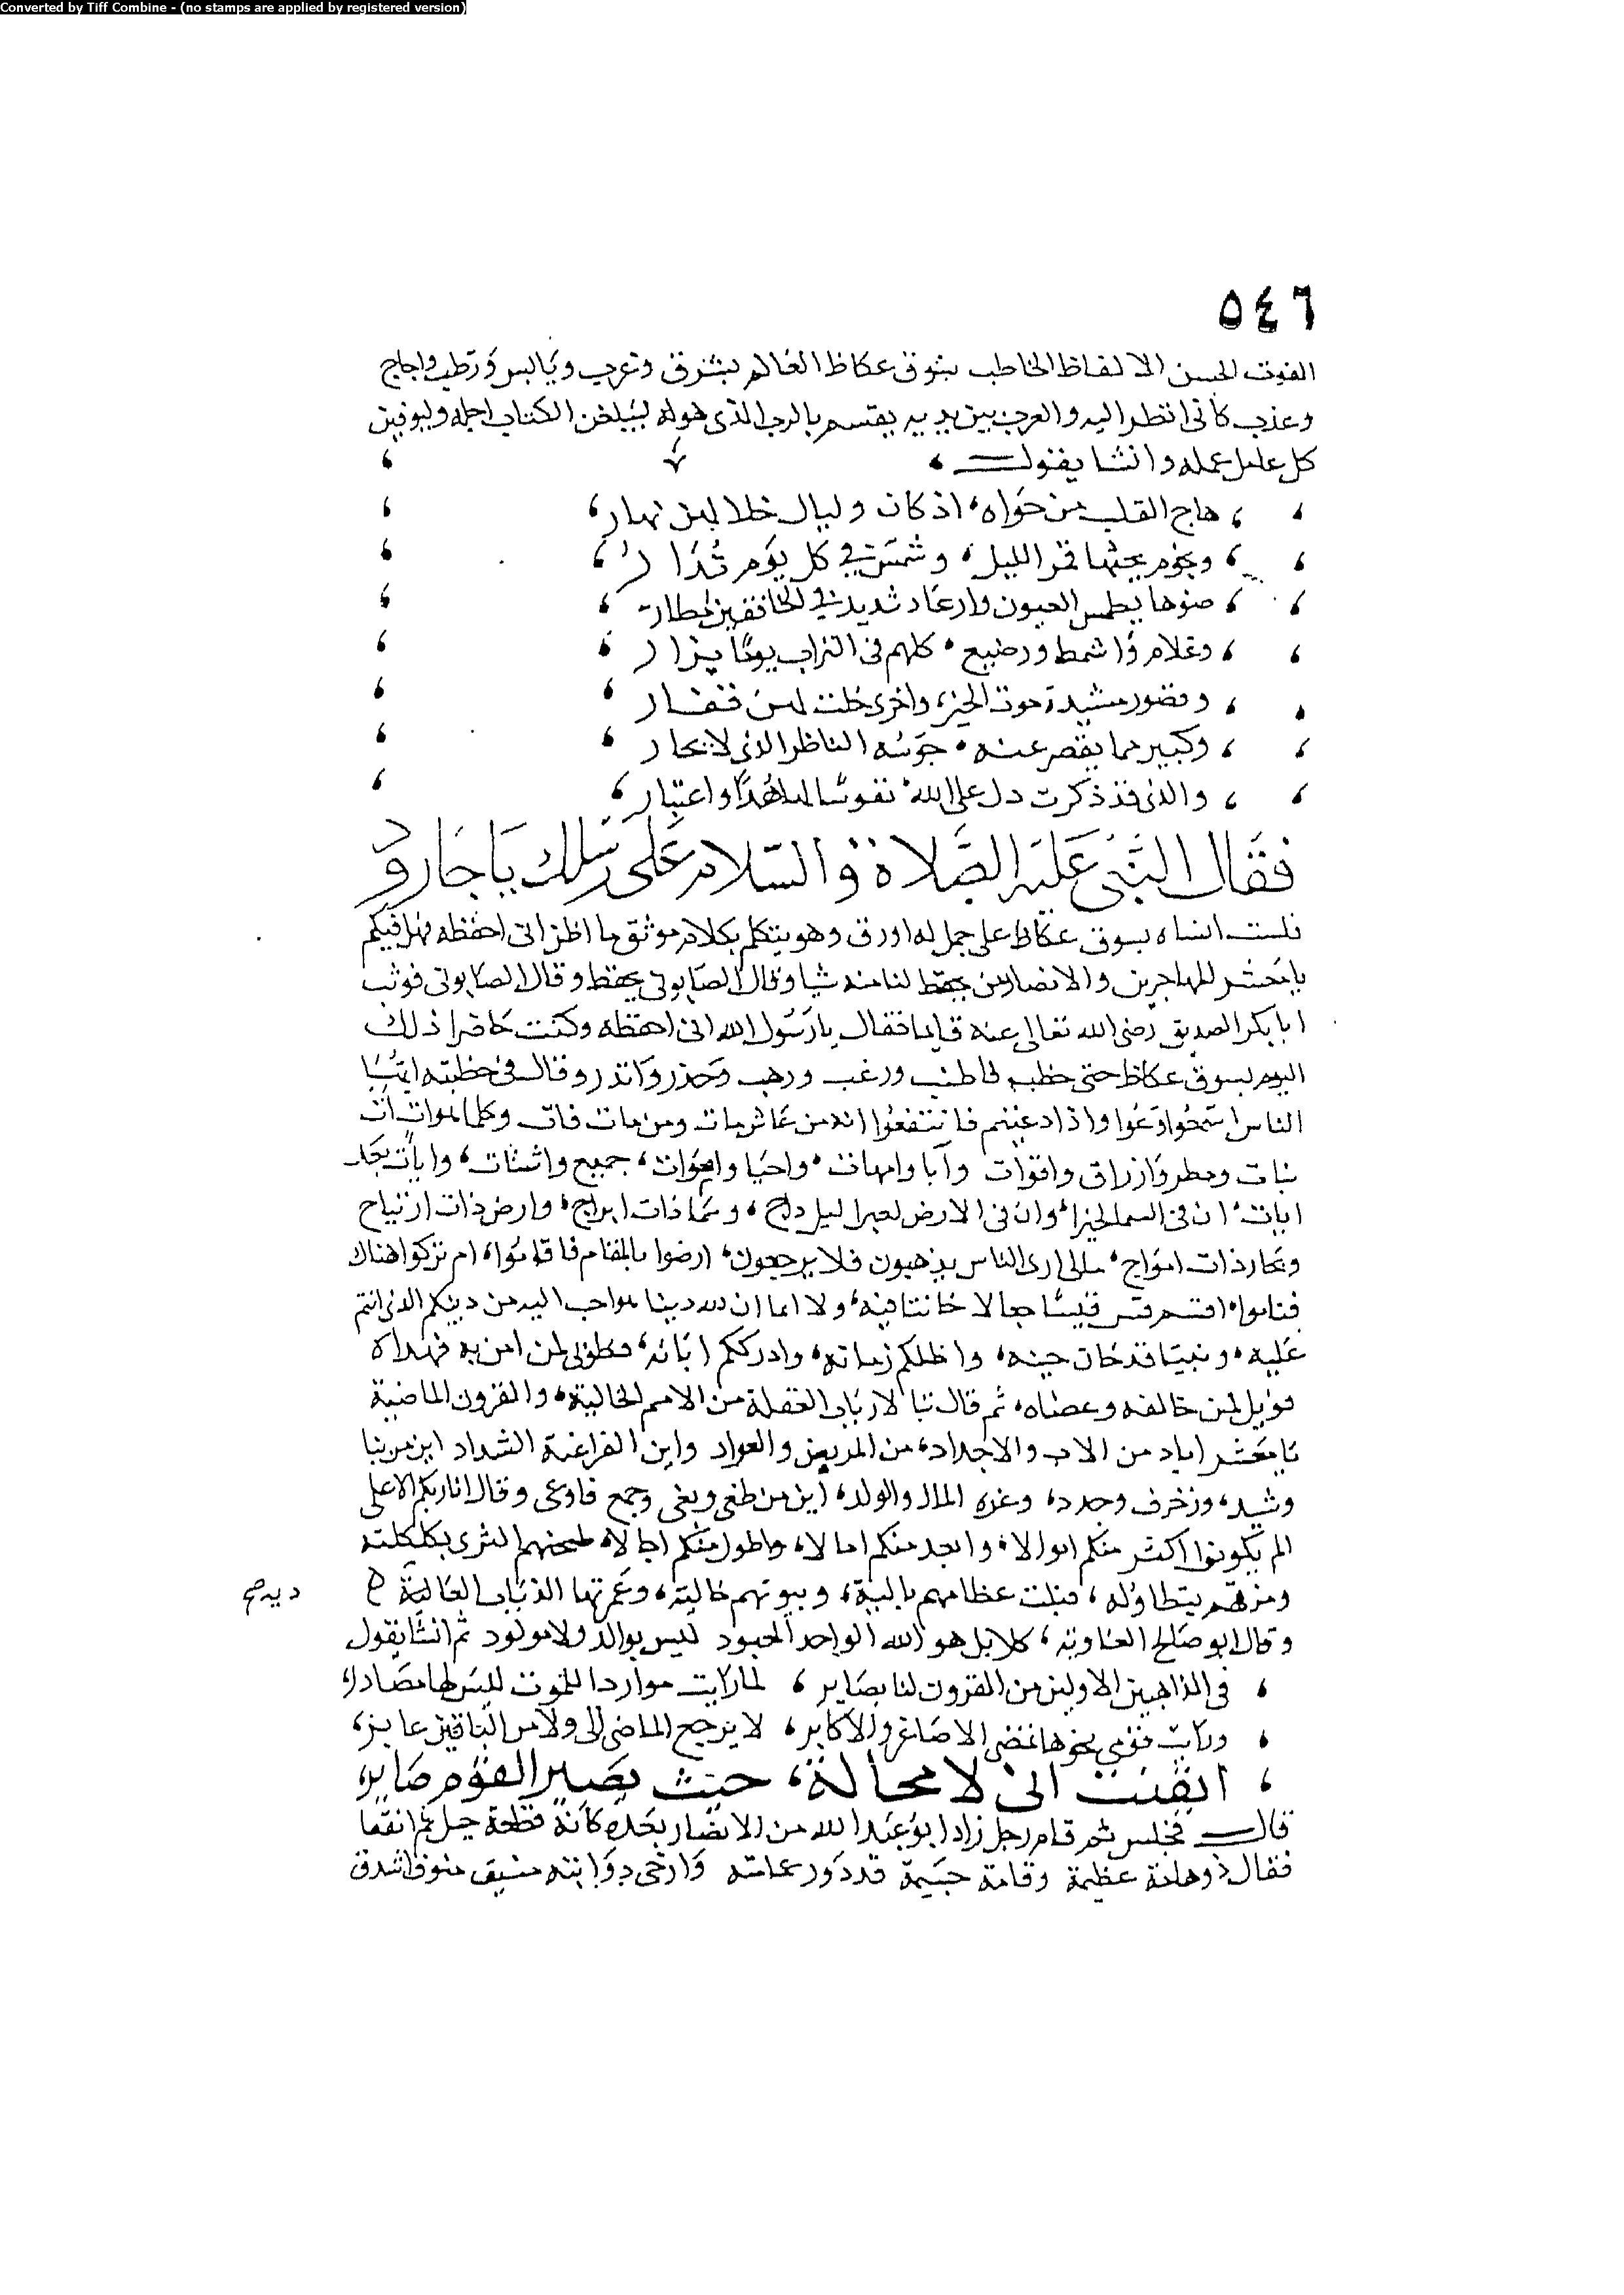 Converted by Tiff Combine - (no stamps are applied by registered version)
٥٤٦
الفوت الحسن الالفاظ الخاطب بسوق عكاظ العالم بشرق وغرب ويابس ورطب واجاج
وعذب كانى انظر اليه والعرب بين يديه يقسم بالرب الذى هو له ليبلغن الكتاب اجله وليوفين
كل عامل عمله وانشا يقول
هاج القلب من جواه، اذكار وليال خلالهن نهار،
ونجوم يحثها قمر الليل، وشمس في كل يوم تدار،
ضوها يطمس العيون وارعاد شديد في الخافقين مطار
وغلام واشمط ورضيع، كلهم فى التراب يوما يزار
وقصور مشيدة حوت الخير، واخرى خلت لهن قفار
وكبير مما يقصر عنه، جوسه الناظر الذى لا يحار
والذى قد ذكرت دل على الله، نفوسا لها هدا واعتبار،
فقال النبى عليه الصلاة والسلام على رسلك يا جارود
فلست انساه بسوق عكاظ على جمل له اورق وهو يتكلم بكلام موثق ما اظن انى احفظه فهل فيكم
يا معشر المهاجرين والانصار من يحفظ لنا منه شيا وقال الصابونى يحفظ وقال الصابونى فوثب
ابا بكر الصديق رضى الله تعالى عنه قايما فقال يا رسول الله انى احفظه وكنت حاضرا ذلك
اليوم بسوق عكاظ حتى خطب فاطنب ورغب ورهب وحذر وانذر وقال فى خطبته ايها
الناس اسمعوا وعوا واذا وعيتم فانتفعوا انه من عاش مات ومن مات فات وكلما هو ات ات
نبات ومطر وارزاق واقوات وابا وامهات، واحيا واموات، جميع واشتات، وايات بعد
ايات، ان فى السما لخبرا، وان فى الارض لعبرا ليل داج، وسما ذات ابراج، وارض ذات ارتياح
وبحار ذات امواج، مالى ارى الناس يذهبون فلا يرجعون، ارضوا بالمقام فاقاموا، ام تركوا هناك
فناموا، اقسم قس قسما حقا لا خانثا فيه، ولا اما ان لله دينا هو احب اليه من دينكم الذى انتم
عليه، ونبيا قد خان حينه، واظلكم زمانه، وادرككم ابانه، فطوبى لمن امن به فهداه
فويل لمن خالفه وعصاه، ثم قال تبا لارباب الغفلة من الامم الخالية، والقرون الماضية
يا معشر اياد من الاب والاجداد، من المريض والعواد واين الفراعنة الشداد اين من بنا
وشيد، وزخرف وجدد، وغره المال والولد، اين من طغى وبغى وجمع فاوعى وقال انا ربكم الاعلى
الم يكونوا اكثر منكم اموالا، وابعد منكم امالا، واطول منكم اجالا، طحنهم الثرى بكلكله
ومزقهم بتطاوله، فبلت عظامهم بالية، وبيوتهم خالية، وعمرتها الذياب العالية
وقال ابو صالح العاوية، كلا بل هو الله الواحد المعبود ليس بوالد ولا مولود ثم انشا يقول
فى الذاهبين الاولين من القرون لنا بصاير، لما رايت مواردا للموت ليس لها مصادر،
ورايت قومى نحوها تمضى الاصاغر والاكابر، لا يرجع الماضى الى ولا من الباقين غابر،
ايقنت انى لا محالة، حيث يصير القوم صاير،
قال فجلس ثم قام رجل زاد ابو عبد الله من الانصار بعده كانه قطعة جبل ثم اتفقا
فقال ذو هامة عظيمة وقامة جسيمة قد دور عمامته وارخى ذوابته منيف منوف اشدق